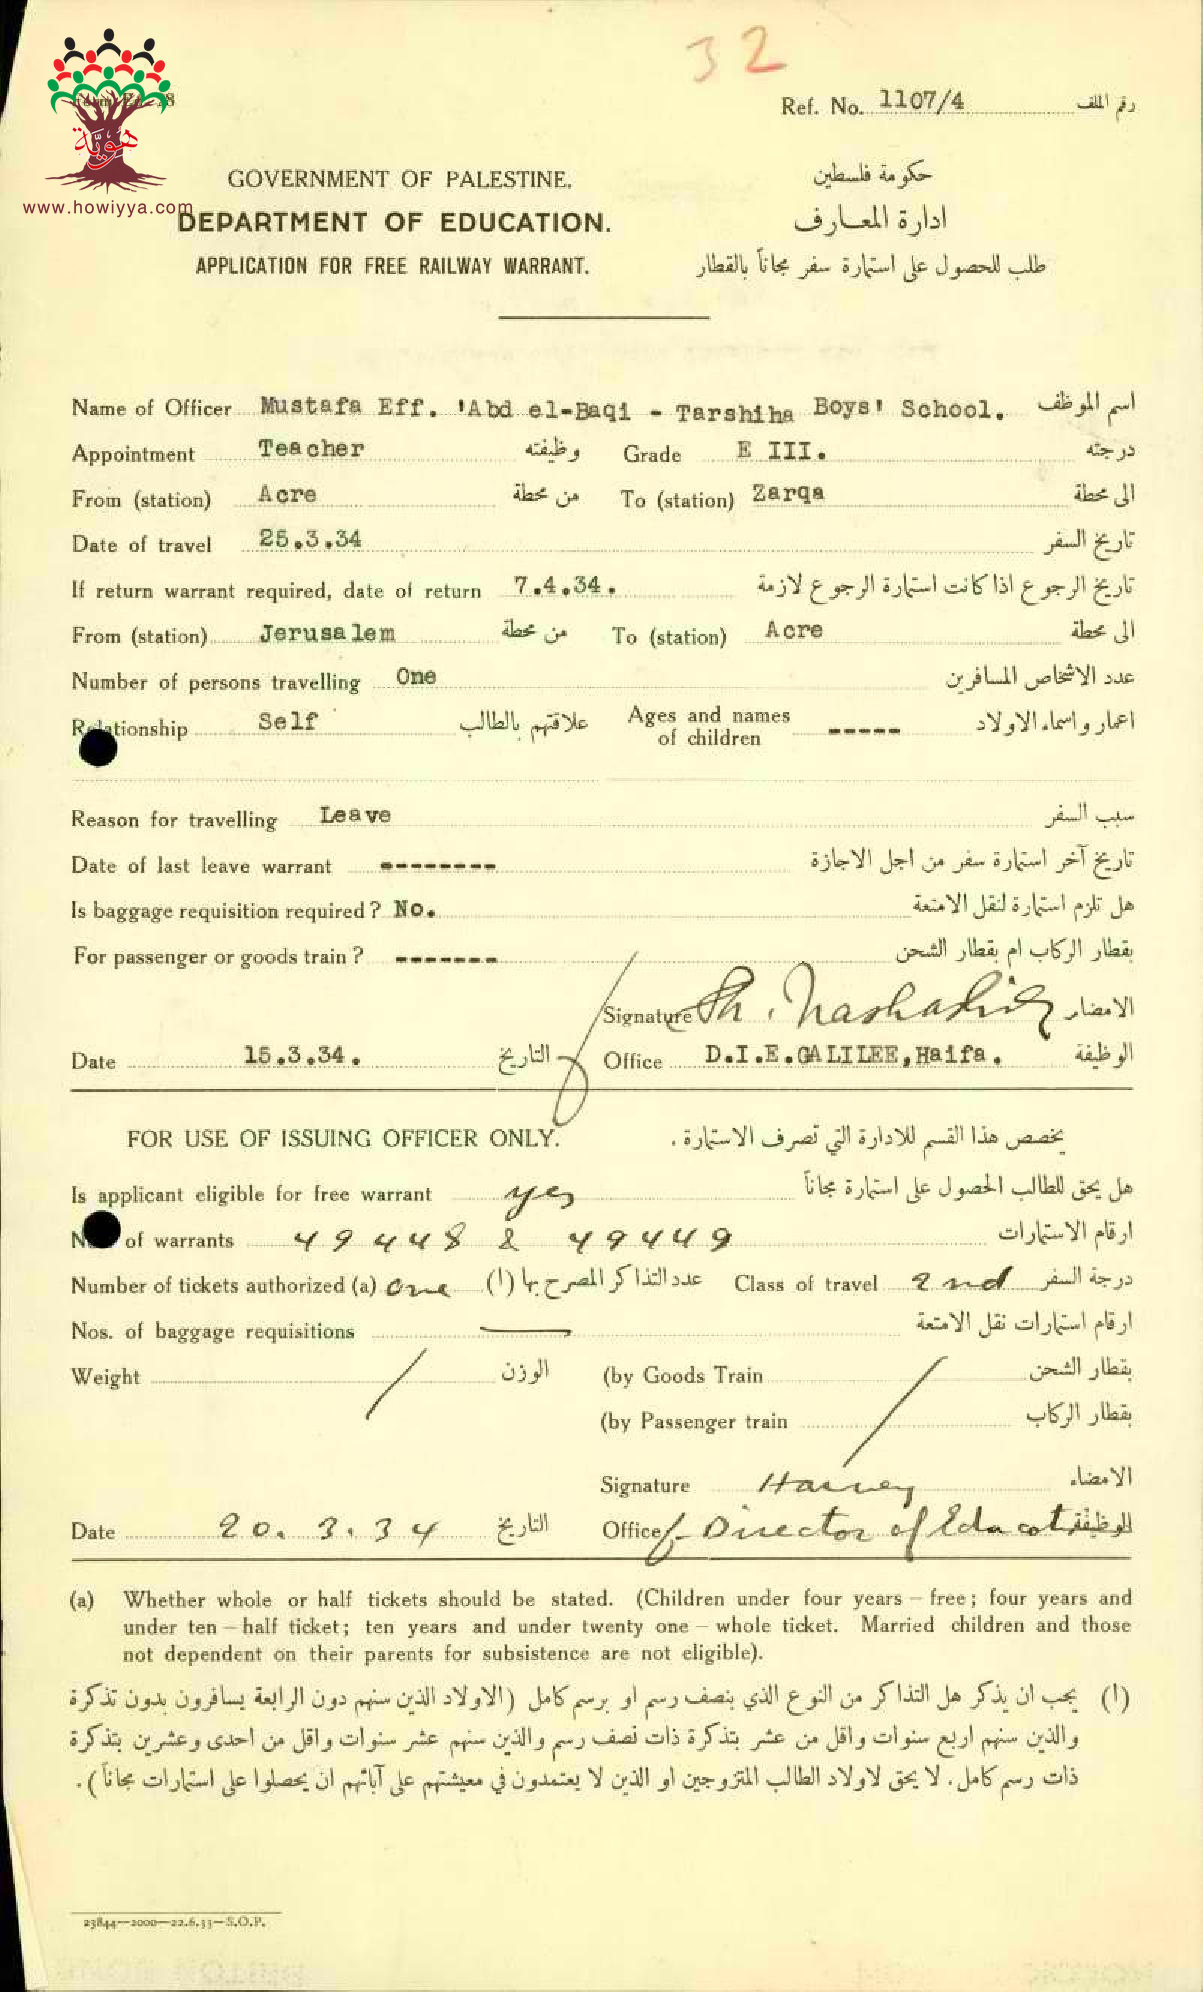 32
Ref. No. 1107/4 رقم الملف
هويّة
www.howiyya.com
GOVERNMENT OF PALESTINE. حكومة فلسطين
DEPARTMENT OF EDUCATION. ادارة المعارف
APPLICATION FOR FREE RAILWAY WARRANT. طلب للحصول على استمارة سفر مجاناً بالقطار
Name of Officer Mustafa Eff. 'Abd el-Baqi - Tarshiha Boys' School. اسم الموظف
Appointment Teacher وظيفته Grade E III. درجته
From (station) Acre من محطة To (station) Zarqa الى محطة
Date of travel 25.3.34 تاريخ السفر
If return warrant required, date of return 7.4.34. تاريخ الرجوع اذا كانت استمارة الرجوع لازمة
From (station) Jerusalem من محطة To (station) Acre الى محطة
Number of persons travelling One عدد الاشخاص المسافرين
Relationship Self علاقتهم بالطالب Ages and names of children ----- اعمار واسماء الاولاد
Reason for travelling Leave سبب السفر
Date of last leave warrant -------- تاريخ آخر استمارة سفر من اجل الاجازة
Is baggage requisition required? No. هل تلزم استمارة لنقل الامتعة
For passenger or goods train? ------- بقطار الركاب ام بقطار الشحن
Signature Sh. Nashashibi الامضاء
Date 15.3.34. التاريخ Office D.I.E.GALILEE,Haifa. الوظيفة
FOR USE OF ISSUING OFFICER ONLY. يخصص هذا القسم للادارة التي تصرف الاستمارة .
Is applicant eligible for free warrant yes هل يحق للطالب الحصول على استمارة مجاناً
of warrants 49448 & 49449 ارقام الاستمارات
Number of tickets authorized (a) one عدد التذاكر المصرح بها (ا) Class of travel 2nd درجة السفر
Nos. of baggage requisitions — ارقام استمارات نقل الامتعة
Weight / الوزن (by Goods Train بقطار الشحن
(by Passenger train بقطار الركاب
Signature Harvey الامضاء
Date 20.3.34 التاريخ Office f. Director of Education الوظيفة
(a) Whether whole or half tickets should be stated. (Children under four years – free; four years and
under ten – half ticket; ten years and under twenty one – whole ticket. Married children and those
not dependent on their parents for subsistence are not eligible).
(ا) يجب ان يذكر هل التذاكر من النوع الذي بنصف رسم او برسم كامل (الاولاد الذين سنهم دون الرابعة يسافرون بدون تذكرة
والذين سنهم اربع سنوات واقل من عشر بتذكرة ذات نصف رسم والذين سنهم عشر سنوات واقل من احدى وعشرين بتذكرة
ذات رسم كامل . لا يحق لاولاد الطالب المتزوجين او الذين لا يعتمدون في معيشتهم على آبائهم ان يحصلوا على استمارات مجاناً ) .
23844—2000—22.6.33—S.O.P.